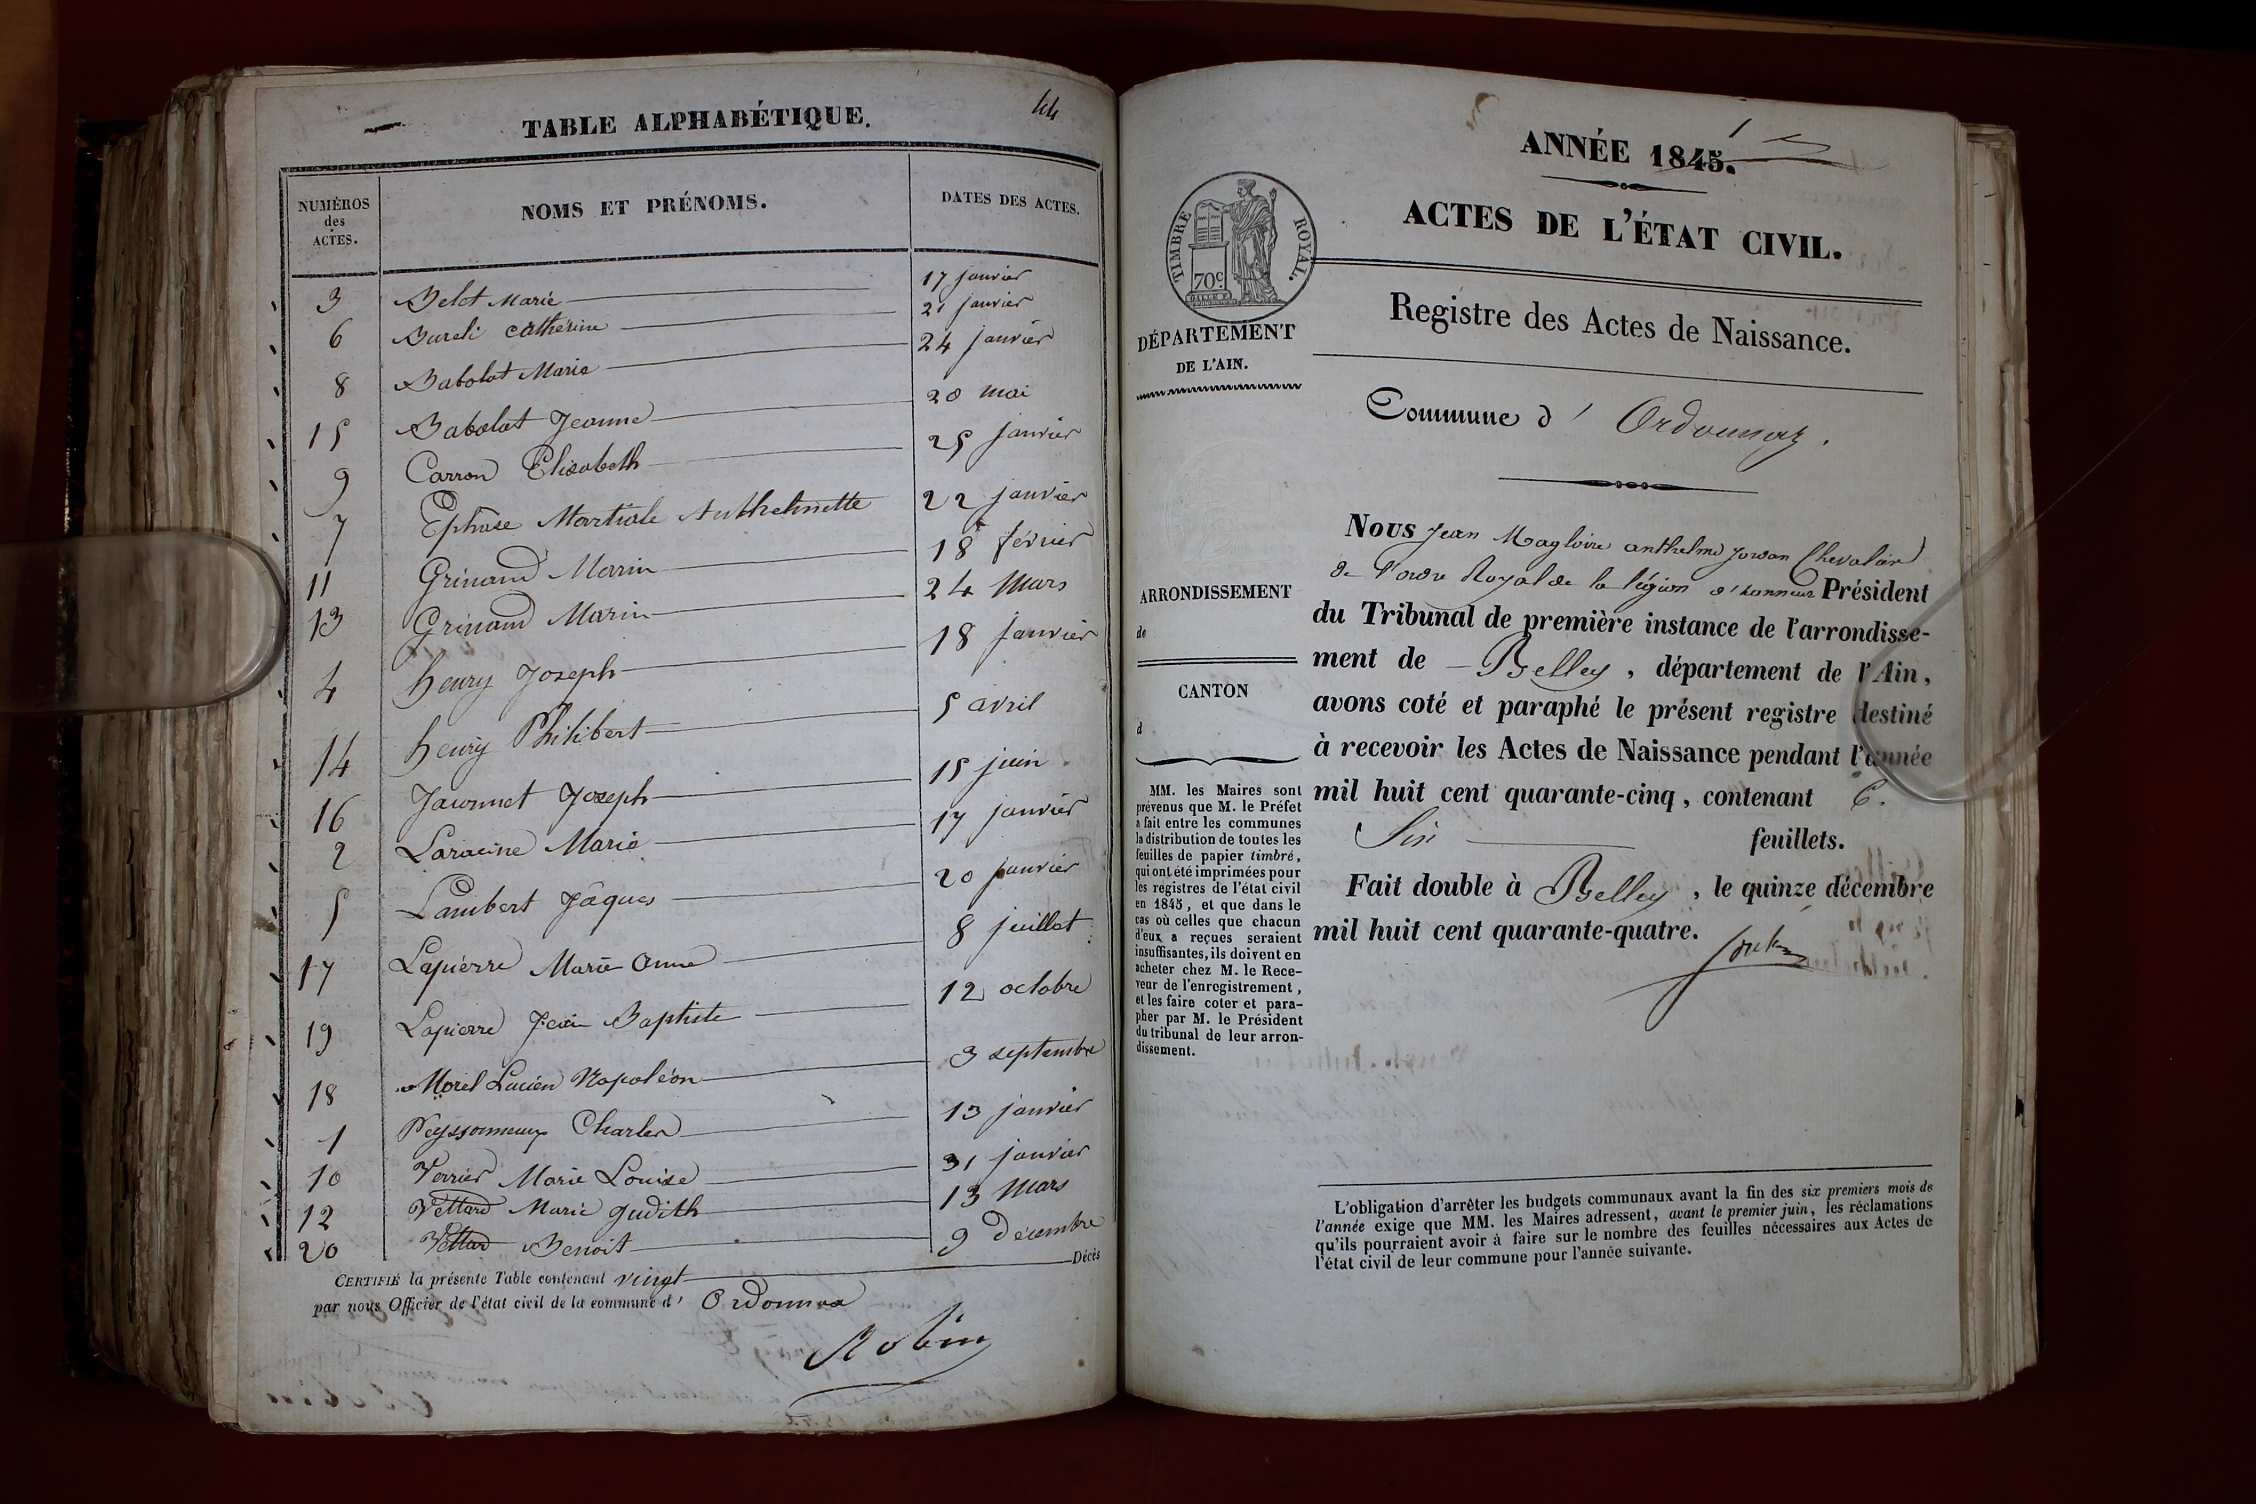 44
TABLE ALPHABÉTIQUE.
NUMÉROS des ACTES. NOMS ET PRÉNOMS. DATES DES ACTES.
3 Belot Marie 17 janvier
6 Bureli Cathérine 21 janvier
8 Babolat Marie 24 janvier
15 Babolat Jeanne 20 mai
9 Carron Elisabeth 25 janvier
7 Ephise Martiale Anthelmette 22 janvier
11 Grinand Marin 18 février
13 Grinand Marin 24 Mars
4 henry Joseph 18 janvier
14 henry Philibert 5 avril
16 Joseph 15 juin
2 Laracine Marie 17 janvier
5 Lambert Jâques 20 janvier
17 Lapierre Marie Anne 8 juillet
19 Lapierre Jean Baptiste 12 octobre
18 Morel Lucien Napoléon 3 septembre
1 Peyssonneux Charles 13 janvier
10 Verrier Marie Louise 31 janvier
12 Vettard Marie Judith 13 Mars
20 Vettard Benoit 9 Décembre
CERTIFIÉ la présente Table contenant vingt Décès
par nous Officier de l'état civil de la commune d' Ordonnaz
Robin
1
ANNÉE 1845.
ACTES DE L'ÉTAT CIVIL.
TIMBRE ROYAL.
70c
DÉPARTEMENT
DE L'AIN.
Registre des Actes de Naissance.
Commune d' Ordonnaz.
Nous Jean Magloire anthelme Jordan Chevalier
de l'ordre Royal de la légion d'honneur Président
du Tribunal de première instance de l'arrondisse-
ment de Belley, département de l'Ain,
avons coté et paraphé le présent registre destiné
à recevoir les Actes de Naissance pendant l'année
mil huit cent quarante-cinq, contenant 6.
Six feuillets.
Fait double à Belley, le quinze décembre
mil huit cent quarante-quatre.
ARRONDISSEMENT
de
CANTON
d
MM. les Maires sont
prévenus que M. le Préfet
a fait entre les communes
la distribution de toutes les
feuilles de papier timbré,
qui ont été imprimées pour
les registres de l'état civil
en 1845, et que dans le
cas où celles que chacun
d'eux a reçues seraient
insuffisantes, ils doivent en
acheter chez M. le Rece-
veur de l'enregistrement,
et les faire coter et para-
pher par M. le Président
du tribunal de leur arron-
dissement.
L'obligation d'arrêter les budgets communaux avant la fin des six premiers mois de
l'année exige que MM. les Maires adressent, avant le premier juin, les réclamations
qu'ils pourraient avoir à faire sur le nombre des feuilles nécessaires aux Actes de
l'état civil de leur commune pour l'année suivante.